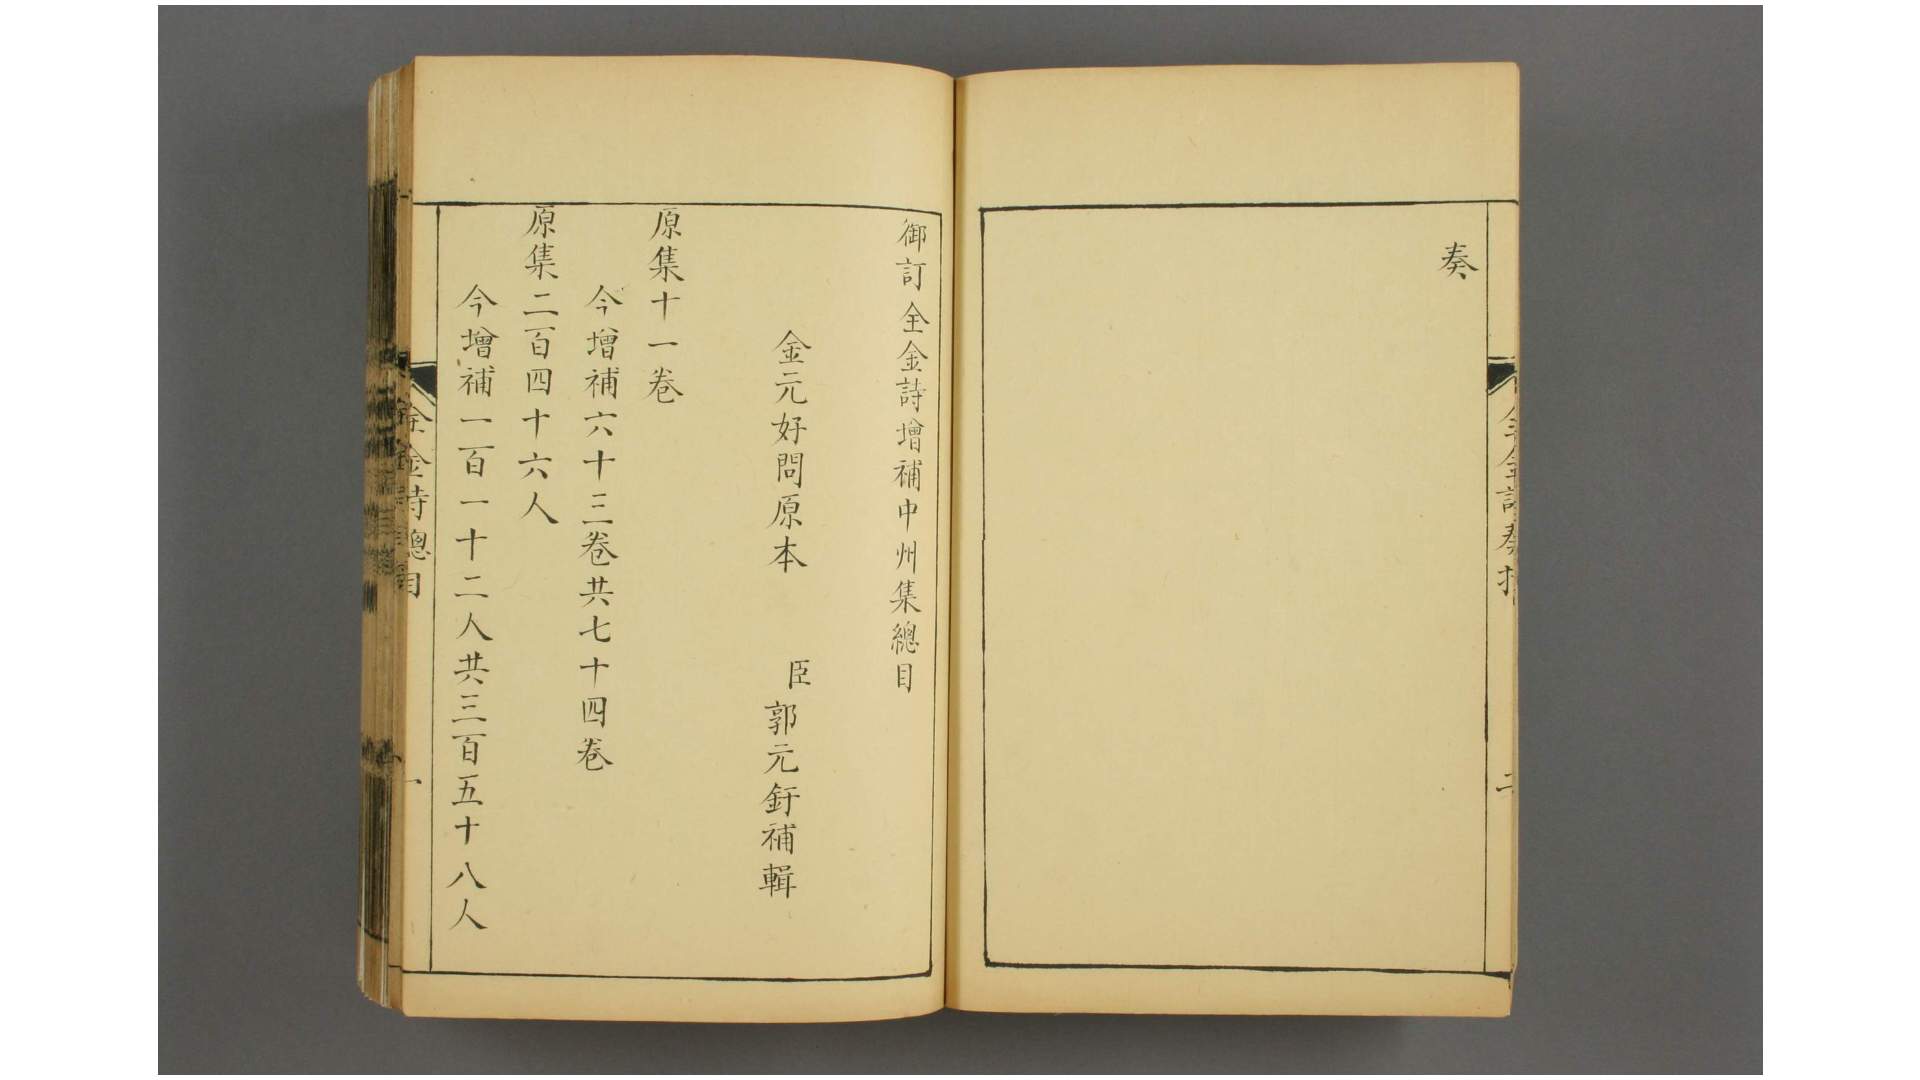 奏
全金詩奏摺
二
御訂全金詩增補中州集總目
金元好問原本　臣郭元釪補輯
原集十一卷
今增補六十三卷共七十四卷
原集二百四十六人
今增補一百一十二人共三百五十八人
全金詩總目
一